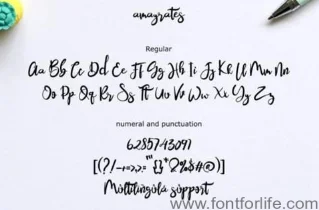 amagrates
Regular
Aa Bb Cc Dd Ee Ff Gg Hh Ii Jj Kk Ll Mm Nn
Oo Pp Qq Rr Ss Tt Uu Vv Ww Xx Yy Zz
numeral and punctuation
6285743091
Multilingula support
www.fontforlife.com